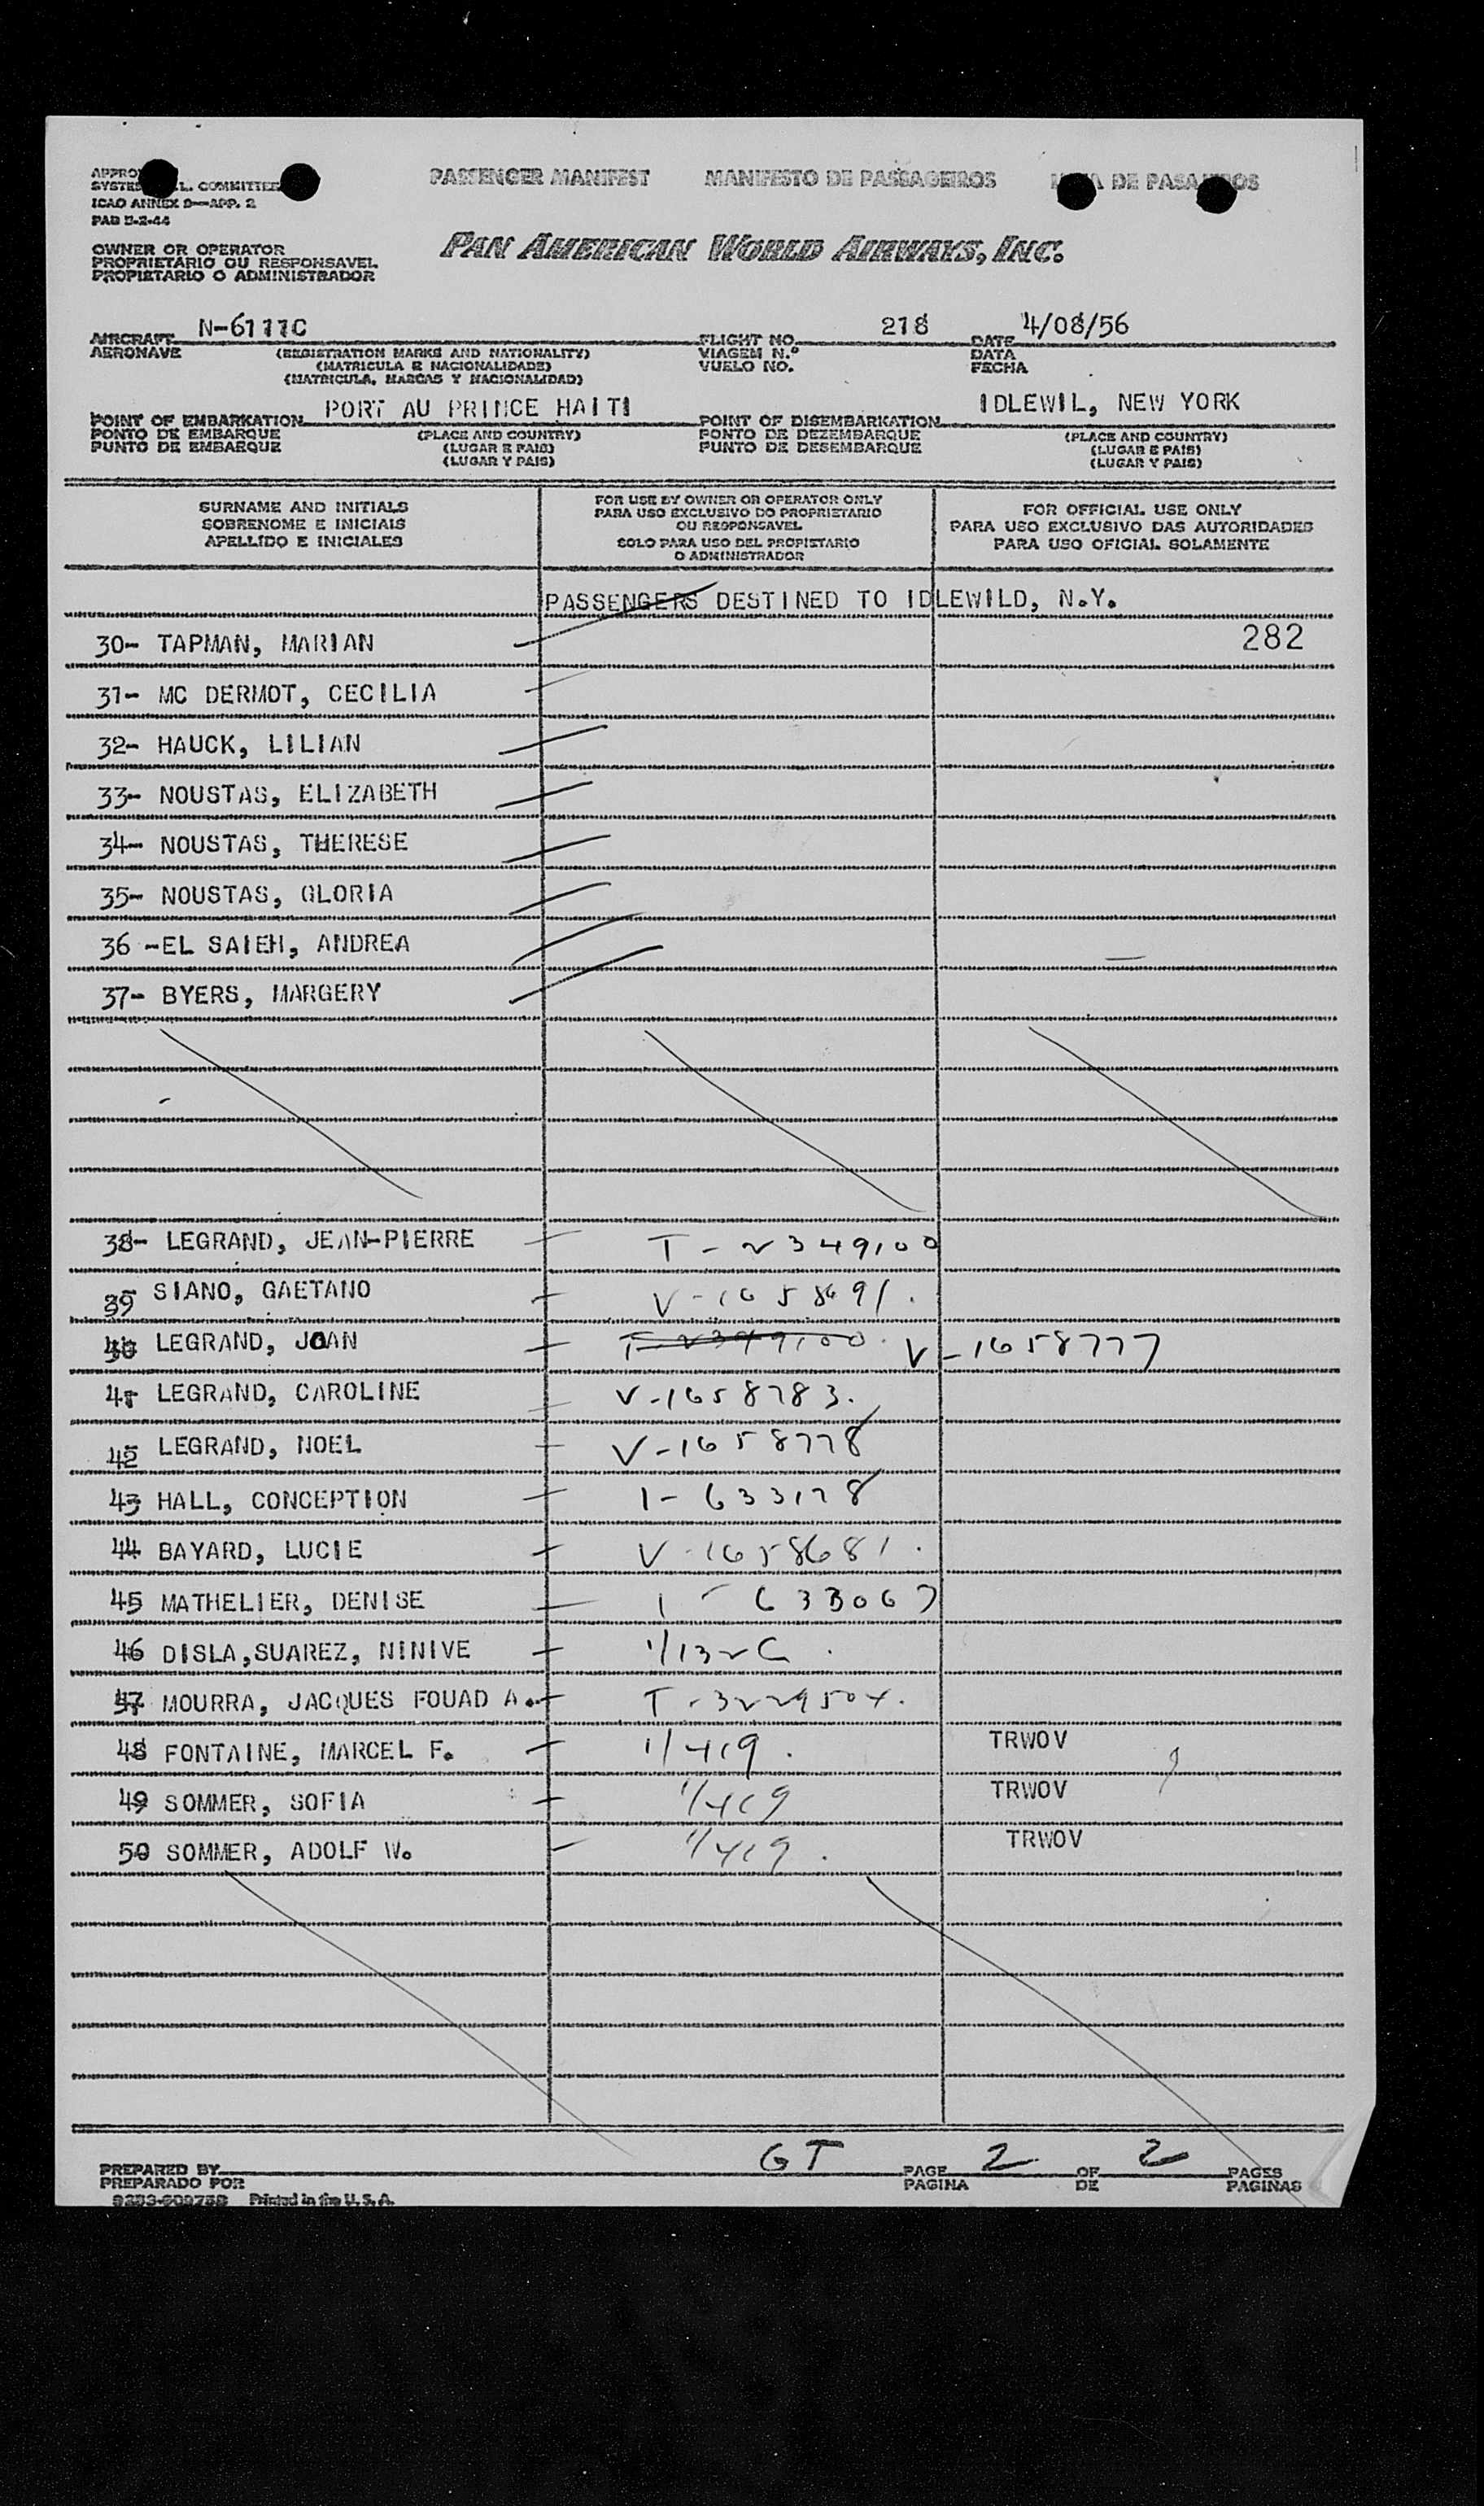 PASSENGER MANIFEST MANIFESTO DE PASSAGEIROS DE
SYSTEM COMMITTEE
ICAO ANNEX 9—APP. 2
PAB 5-2-44
OWNER OR OPERATOR
PROPRIETÁRIO OU RESPONSAVEL
PROPIETARIO O ADMINISTRADOR
PAN AMERICAN WORLD AIRWAYS, INC.
AIRCRAFT N-6111C FLIGHT NO. 218 DATE 4/08/56
AERONAVE (REGISTRATION MARKS AND NATIONALITY) VIAGEM N.º DATA
(MATRICULA E NACIONALIDADE) VUELO NO. FECHA
(MATRICULA, MARCAS Y NACIONALIDAD)
POINT OF EMBARKATION PORT AU PRINCE HAITI POINT OF DISEMBARKATION IDLEWIL, NEW YORK
PONTO DE EMBARQUE (PLACE AND COUNTRY) PONTO DE DEZEMBARQUE (PLACE AND COUNTRY)
PUNTO DE EMBARQUE (LUGAR E PAIS) PUNTO DE DESEMBARQUE (LUGAR E PAIS)
(LUGAR Y PAIS) (LUGAR Y PAIS)
SURNAME AND INITIALS
SOBRENOME E INICIAIS
APELLIDO E INICIALES
FOR USE BY OWNER OR OPERATOR ONLY
PARA USO EXCLUSIVO DO PROPRIETARIO
OU RESPONSAVEL
SOLO PARA USO DEL PROPIETARIO
O ADMINISTRADOR
FOR OFFICIAL USE ONLY
PARA USO EXCLUSIVO DAS AUTORIDADES
PARA USO OFICIAL SOLAMENTE
PASSENGERS DESTINED TO IDLEWILD, N.Y.
30- TAPMAN, MARIAN 282
31- MC DERMOT, CECILIA
32- HAUCK, LILIAN
33- NOUSTAS, ELIZABETH
34- NOUSTAS, THERESE
35- NOUSTAS, GLORIA
36 -EL SAIEH, ANDREA
37- BYERS, MARGERY
38- LEGRAND, JEAN-PIERRE T-2349100
39 SIANO, GAETANO V-1658691.
40 LEGRAND, JOAN T-2349100. V-1658777
41 LEGRAND, CAROLINE V-1658783.
42 LEGRAND, NOEL V-1658778
43 HALL, CONCEPTION I-633178
44 BAYARD, LUCIE V-1658681.
45 MATHELIER, DENISE I-633067
46 DISLA,SUAREZ, NINIVE 1/132C.
47 MOURRA, JACQUES FOUAD A. T-3229504.
48 FONTAINE, MARCEL F. 1/419. TRWOV
49 SOMMER, SOFIA 1/419 TRWOV
50 SOMMER, ADOLF W. 1/419. TRWOV
PREPARED BY GT PAGE 2 OF 2 PAGES
PREPARADO POR PAGINA DE PAGINAS
Printed in the U.S.A.